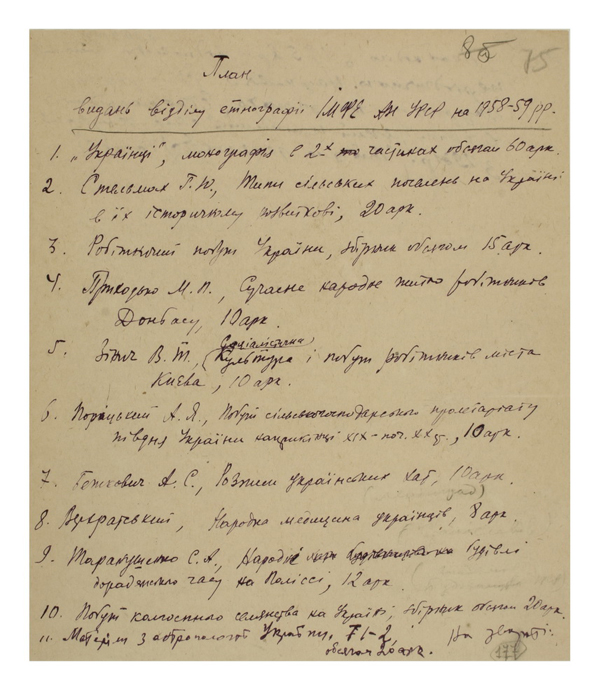 8
75
План
видань відділу етнографії ІМФЕ АН УРСР на 1958-59 рр.
1. „Українці", монографія в 2-х частинах обсягом 60 арк.
2. Стельмах Г. Ю., Типи сільських поселень на Україні
в їх історичному розвиткові, 20 арк.
3. Робітничий побут України, збірник обсягом 15 арк.
4. Приходько М. П., Сучасне народне житло робітників
Донбасу, 10 арк.
Соціалістична
5. В. Т., Культура і побут робітників міста
Києва, 10 арк.
6. Поріцький А. Я., Побут сільськогосподарського пролетаріату
півдня України наприкінці XIX - поч. XX ст., 10 арк.
7. А. С., Розписи українських хат, 10 арк.
8. Народна медицина українців, 8 арк.
9. Тарапушенко С. А., Народні будівлі
дорадянського часу на Поліссі, 12 арк.
10. Побут колгоспного селянства на Україні, збірник обсягом 20 арк.
11. Матеріали з антропології України, Т 1-2,
обсягом 20 арк. На звороті:
177